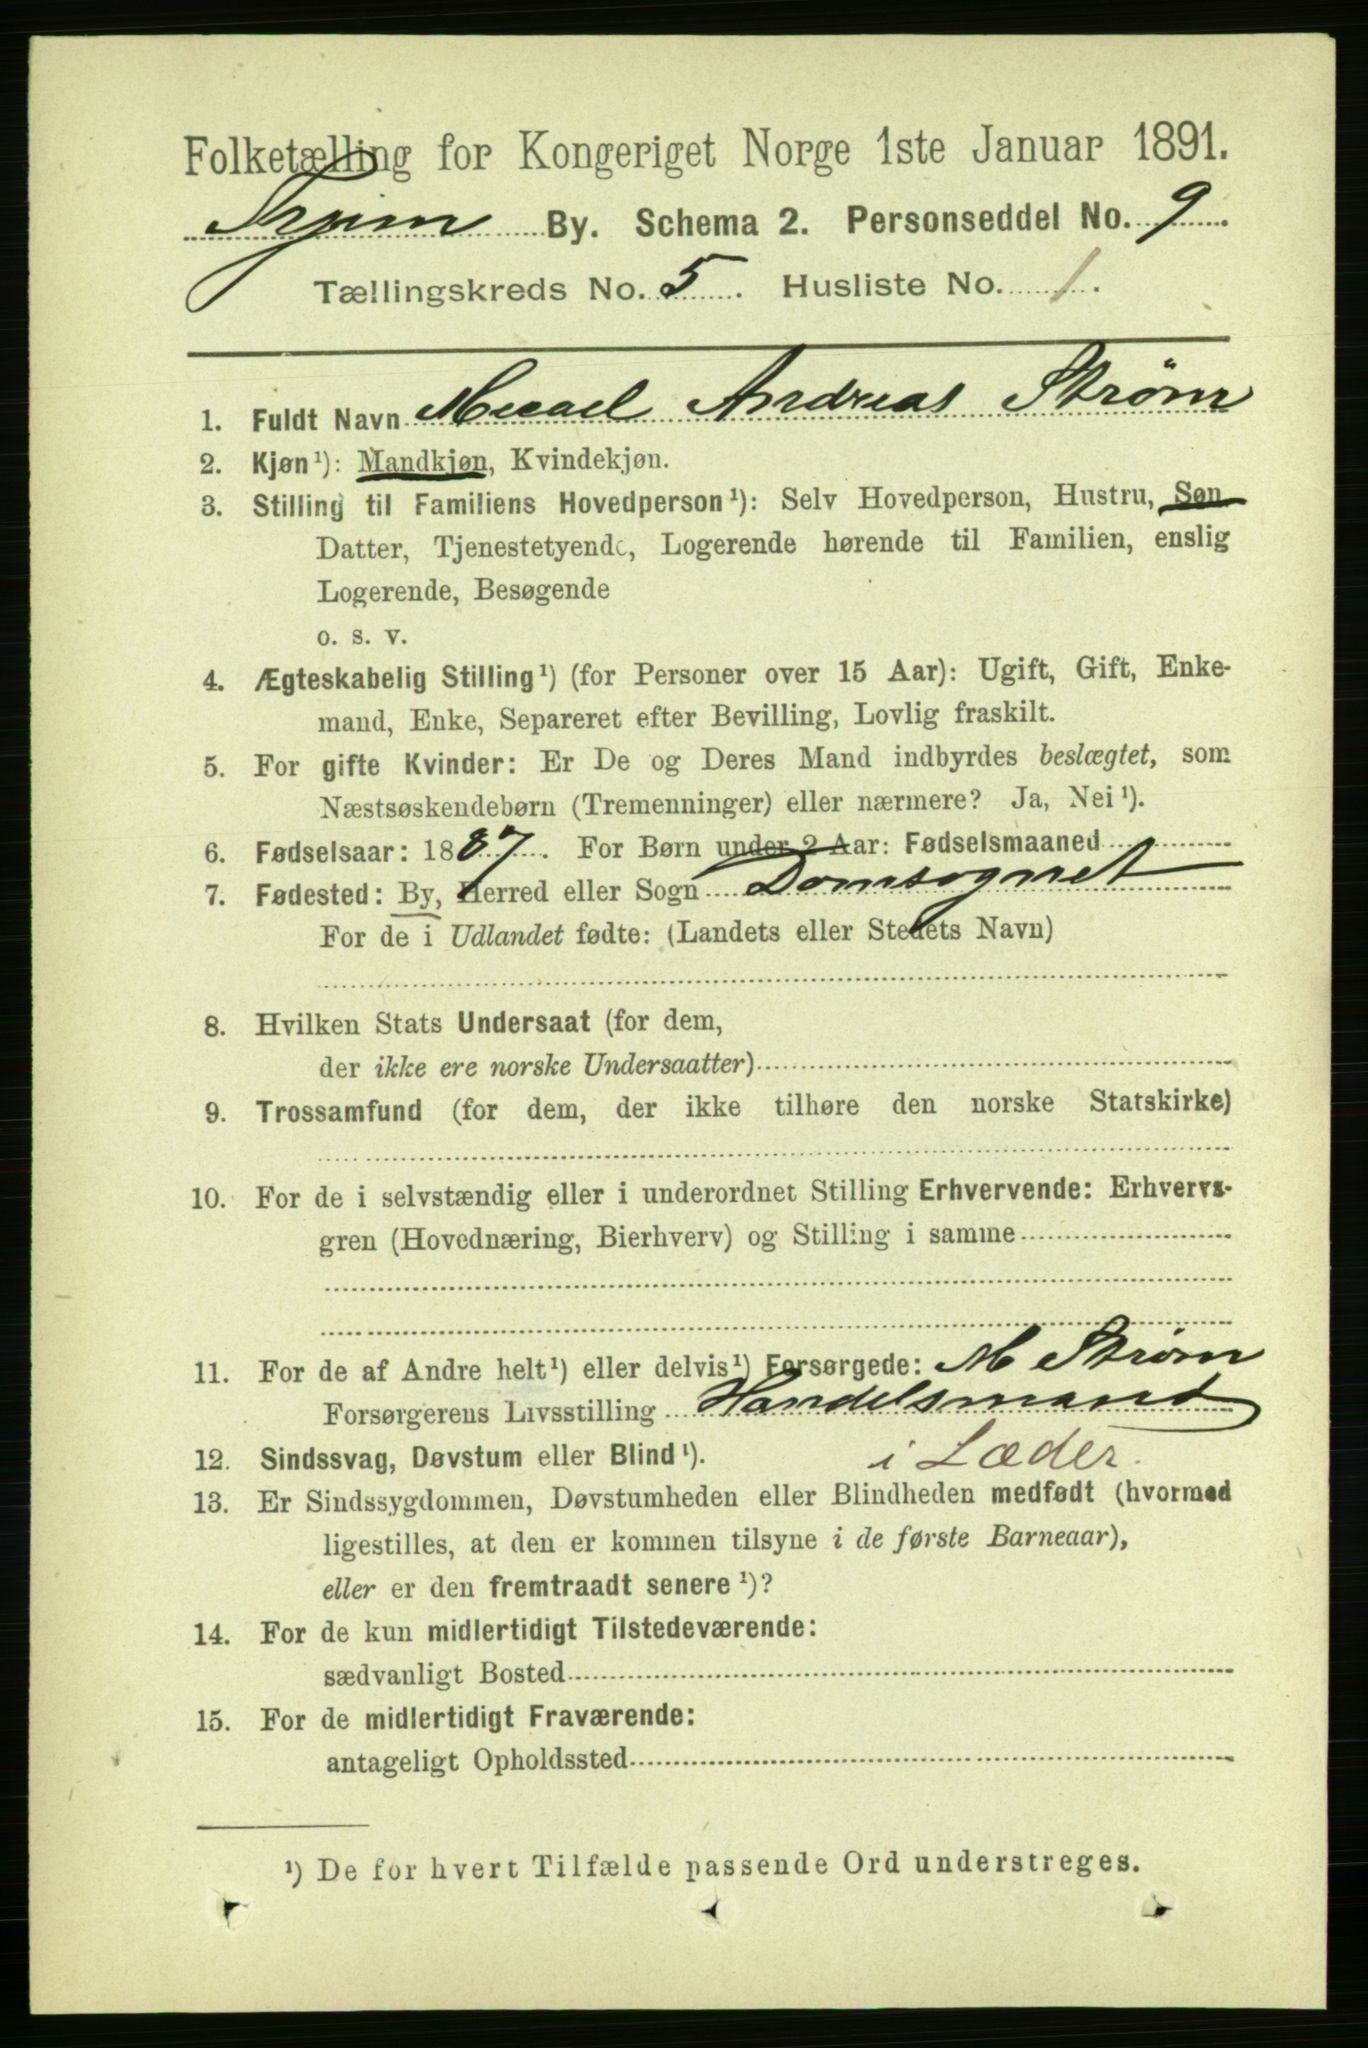 Folketælling for Kongeriget Norge 1ste Januar 1891.
Trhjem By. Schema 2. Personseddel No. 9.
Tællingskreds No. 5. Husliste No. 1.
1. Fuldt Navn Mecael Andreas Strøm
2. Kjøn¹): Mandkjøn, Kvindekjøn.
3. Stilling til Familiens Hovedperson¹): Selv Hovedperson, Hustru, Søn
Datter, Tjenestetyende, Logerende hørende til Familien, enslig
Logerende, Besøgende
o. s. v.
4. Ægteskabelig Stilling¹) (for Personer over 15 Aar): Ugift, Gift, Enke-
mand, Enke, Separeret efter Bevilling, Lovlig fraskilt.
5. For gifte Kvinder: Er De og Deres Mand indbyrdes beslægtet, som
Næstsøskendebørn (Tremenninger) eller nærmere? Ja, Nei¹).
6. Fødselsaar: 1887. For Børn under 2 Aar: Fødselsmaaned
7. Fødested: By, Herred eller Sogn Domsognet
For de i Udlandet fødte: (Landets eller Stedets Navn)
8. Hvilken Stats Undersaat (for dem,
der ikke ere norske Undersaatter)
9. Trossamfund (for dem, der ikke tilhøre den norske Statskirke)
10. For de i selvstændig eller i underordnet Stilling Erhvervende: Erhvervs-
gren (Hovednæring, Bierhverv) og Stilling i samme
11. For de af Andre helt¹) eller delvis¹) Forsørgede: M Strøm
Forsørgerens Livsstilling Handelsmand
12. Sindssvag, Døvstum eller Blind¹). i Læder.
13. Er Sindssygdommen, Døvstumheden eller Blindheden medfødt (hvormed
ligestilles, at den er kommen tilsyne i de første Barneaar),
eller er den fremtraadt senere¹)?
14. For de kun midlertidigt Tilstedeværende:
sædvanligt Bosted
15. For de midlertidigt Fraværende:
antageligt Opholdssted
¹) De for hvert Tilfælde passende Ord understreges.